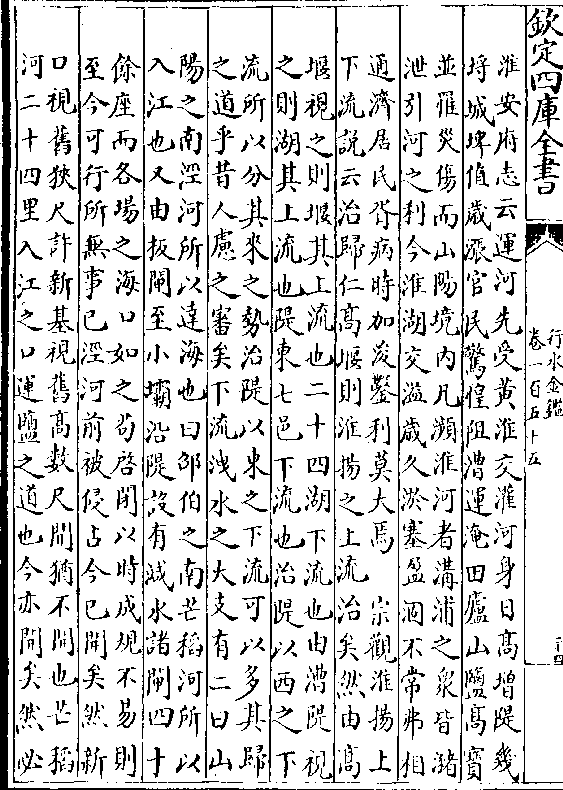 欽定四庫全書
行水金鑑
卷一百五十五
二十四
淮安府志云運河先受黃淮交滙河身日高增隄幾
埒城埤值歲漲官民驚惶阻漕運淹田廬山鹽髙寳
並罹災傷而山陽境内凡瀕淮河者溝浦之泉皆瀦
泄引河之利今淮湖交溢歲久淤塞盈涸不常弗相
通濟居民胥病時加浚鑿利莫大焉　宗觀淮揚上
下流説云治歸仁髙堰則淮揚之上流治矣然由髙
堰視之則堰其上流也二十四湖下流也由漕隄視
之則湖其上流也隄東七邑下流也治隄以西之下
流所以分其來之勢治隄以東之下流可以多其歸
之道乎昔人慮之審矣下流洩水之大支有二曰山
陽之南涇河所以達海也曰邵伯之南芒稻河所以
入江也又由扳閘至小壩沿隄設有減水諸閘四十
餘座而各場之海口如之茍啓閉以時成規不易則
至今可行所無事已涇河前被侵占今已開矣然新
口視舊狹尺許新基視舊高數尺開猶不開也芒稻
河二十四里入江之口運鹽之道也今亦開矣然必